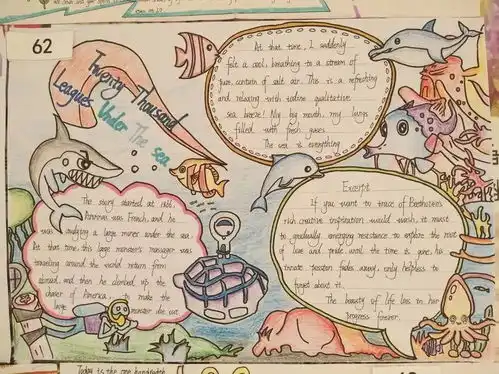 62
Twenty Thousand
Leagues Under The sea
At that time, I suddenly
felt a cool, breathing to a stream of
pure, contain of salt air. This is a refreshing
and relaxing with iodine qualitative
sea breeze! My big mouth, my lungs
filled with fresh gases.
The sea is everything
The story started at 1866.
Aronnax was French, and he
was studying a large moser under the sea.
At that time, this large monster's manager was
traveling around the world return from
abroad, and then he climbed up the
of America. to make the
large monster die out
Excerpt
If you want to trace of Beethoven's
rich creative inspiration would wash, it must
to gradually emerging resistance to explore the root
of love and pride until the time is gone, his
innate passion fades away, only helpless to
forget about it.
The beauty of life lies in her
progress forever.
Today is the one hundredth